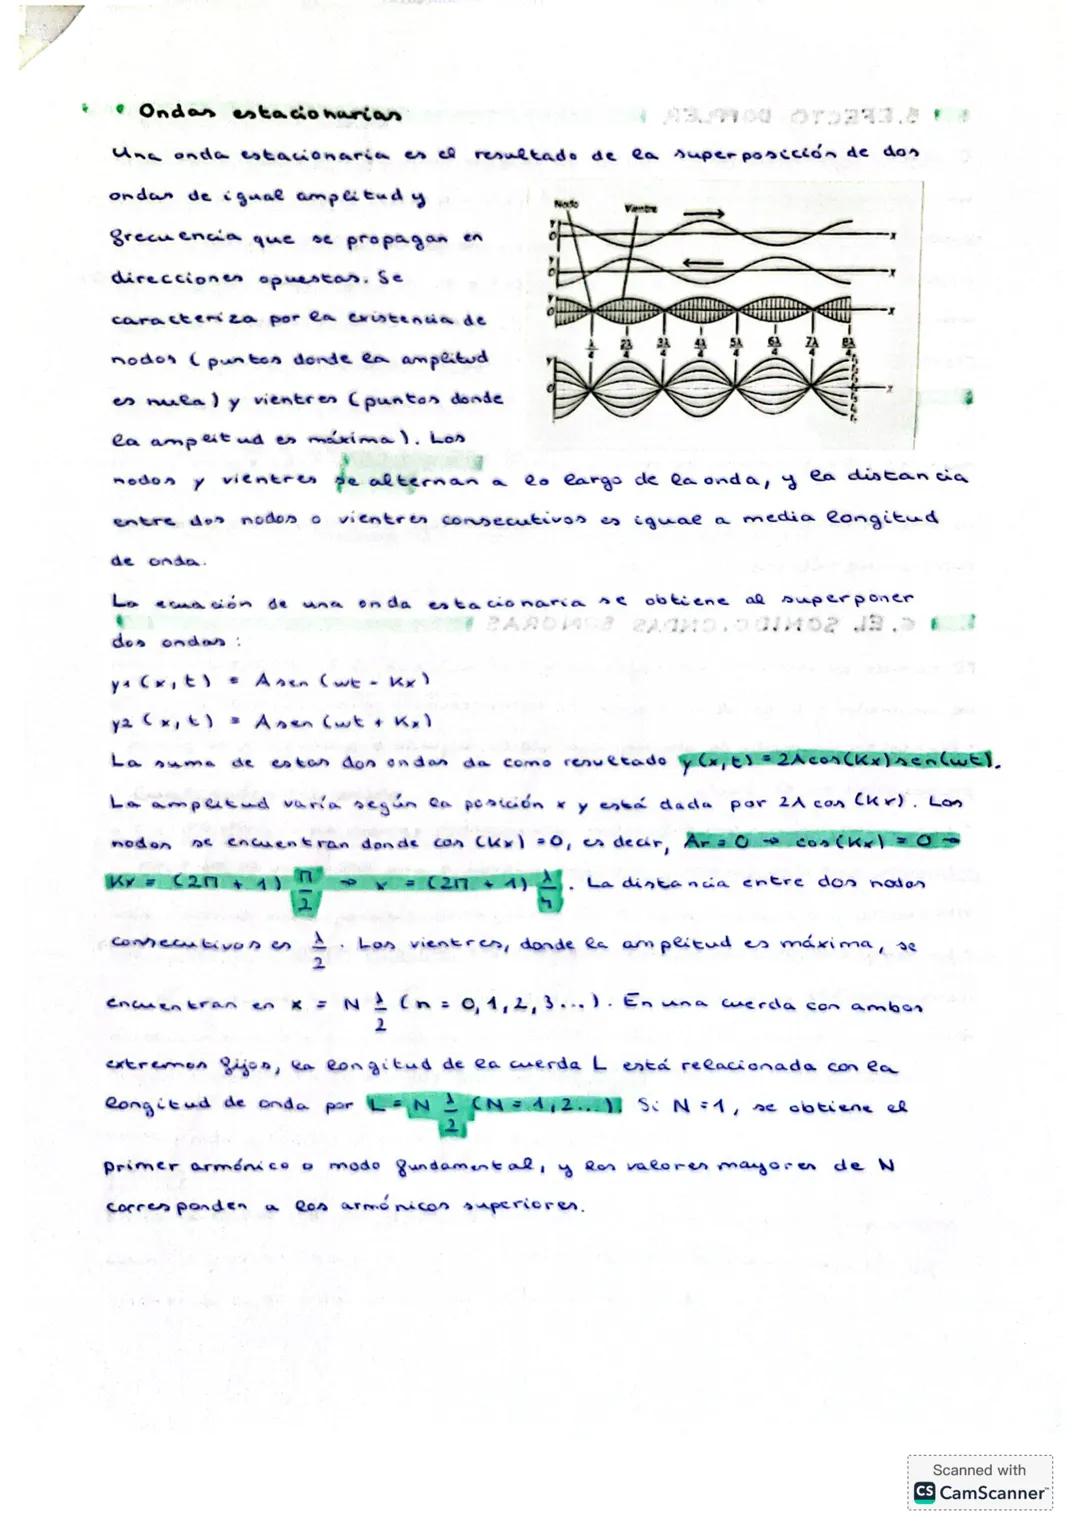 • Ondas estacionarias
Una onda estacionaria es el resultado de la superposición de dos
ondas de igual amplitud y
frecuencia que se propagan en
direcciones opuestas. Se
caracteriza por la existencia de
nodos (puntos donde la amplitud
es nula) y vientres (puntos donde
la amplitud es máxima). Los
Nodo Vientre
Y O X
Y O X
Y O X
λ/4 2λ/4 3λ/4 4λ/4 5λ/4 6λ/4 7λ/4 8λ/4
Y O X
nodos y vientres se alternan a lo largo de la onda, y la distancia
entre dos nodos o vientres consecutivos es igual a media longitud
de onda.
La ecuación de una onda estacionaria se obtiene al superponer
dos ondas:
y1 (x,t) = A sen (wt - Kx)
y2 (x,t) = A sen (wt + Kx)
La suma de estas dos ondas da como resultado y(x,t) = 2A cos(Kx) sen(wt).
La amplitud varía según la posición x y está dada por 2A cos (Kx). Los
nodos se encuentran donde cos (Kx) = 0, es decir, Ar = 0 → cos(Kx) = 0 →
Kx = (2n + 1) π/2 → x = (2n + 1) λ/4. La distancia entre dos nodos
consecutivos es λ/2. Los vientres, donde la amplitud es máxima, se
encuentran en x = N λ/2 (n = 0,1,2,3...). En una cuerda con ambos
extremos fijos, la longitud de la cuerda L está relacionada con la
longitud de onda por L = N λ/2 (N = 1,2...). Si N = 1, se obtiene el
primer armónico o modo fundamental, y los valores mayores de N
corresponden a los armónicos superiores.
Scanned with
CS CamScanner